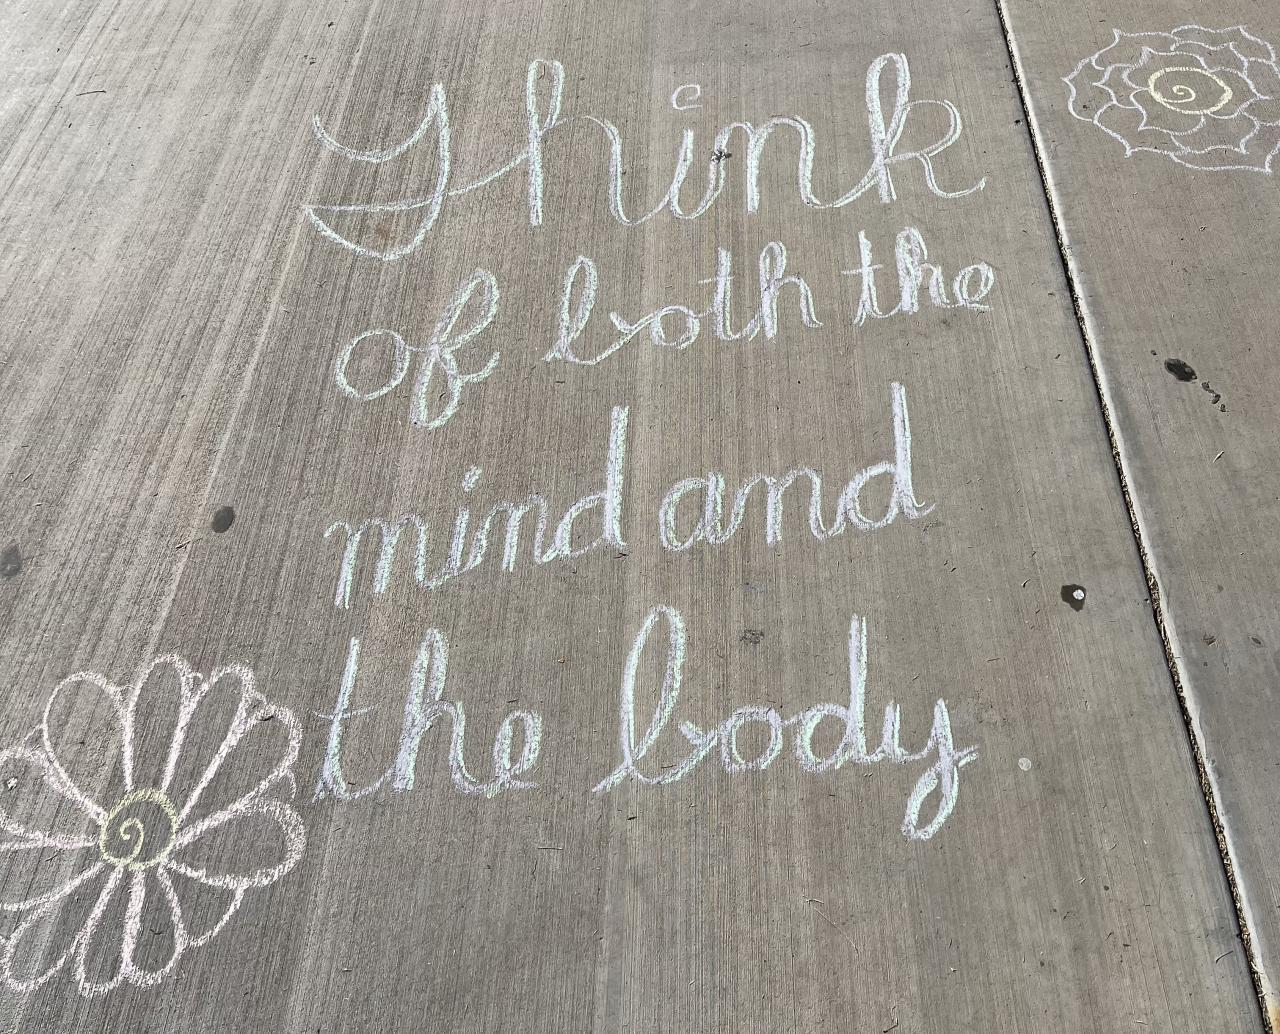 Think
of both the
mind and
the body